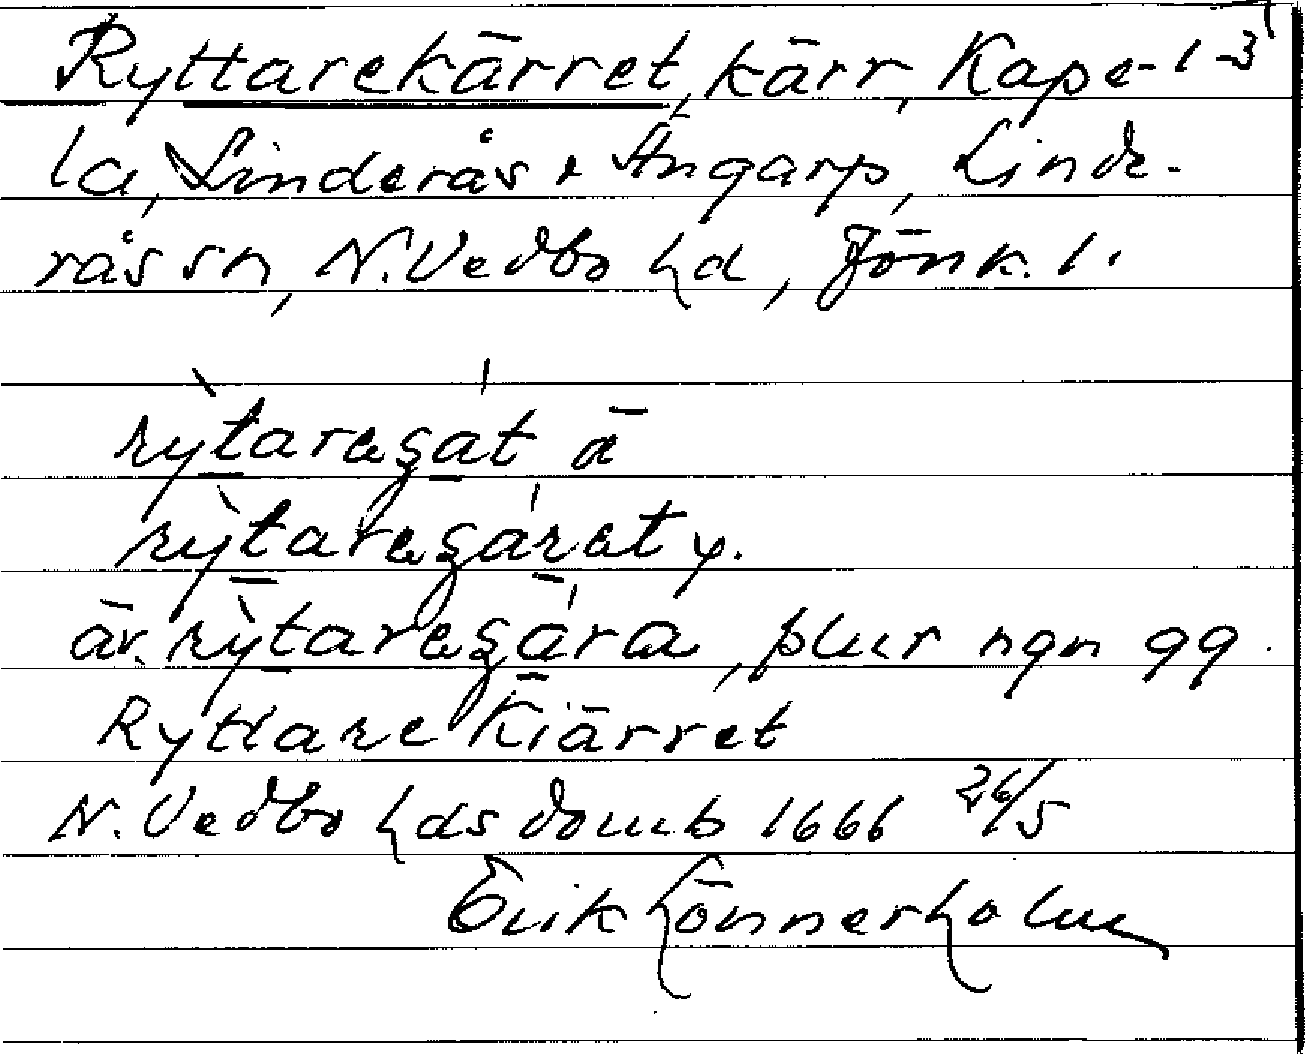 Ryttarekärret, kärr, Kape- 1-3
la, Linderås + Ängarp, Linde-
rås sn, N. Vedbo hd, Jönk. l.
rỳtaragát ä
rỳtaragárat y.
äv. rỳtaragára, plur ngn gg.
Ryttare Kiärret
N. Vedbo hds domb 1666 26/5
Erik Hönnerholm